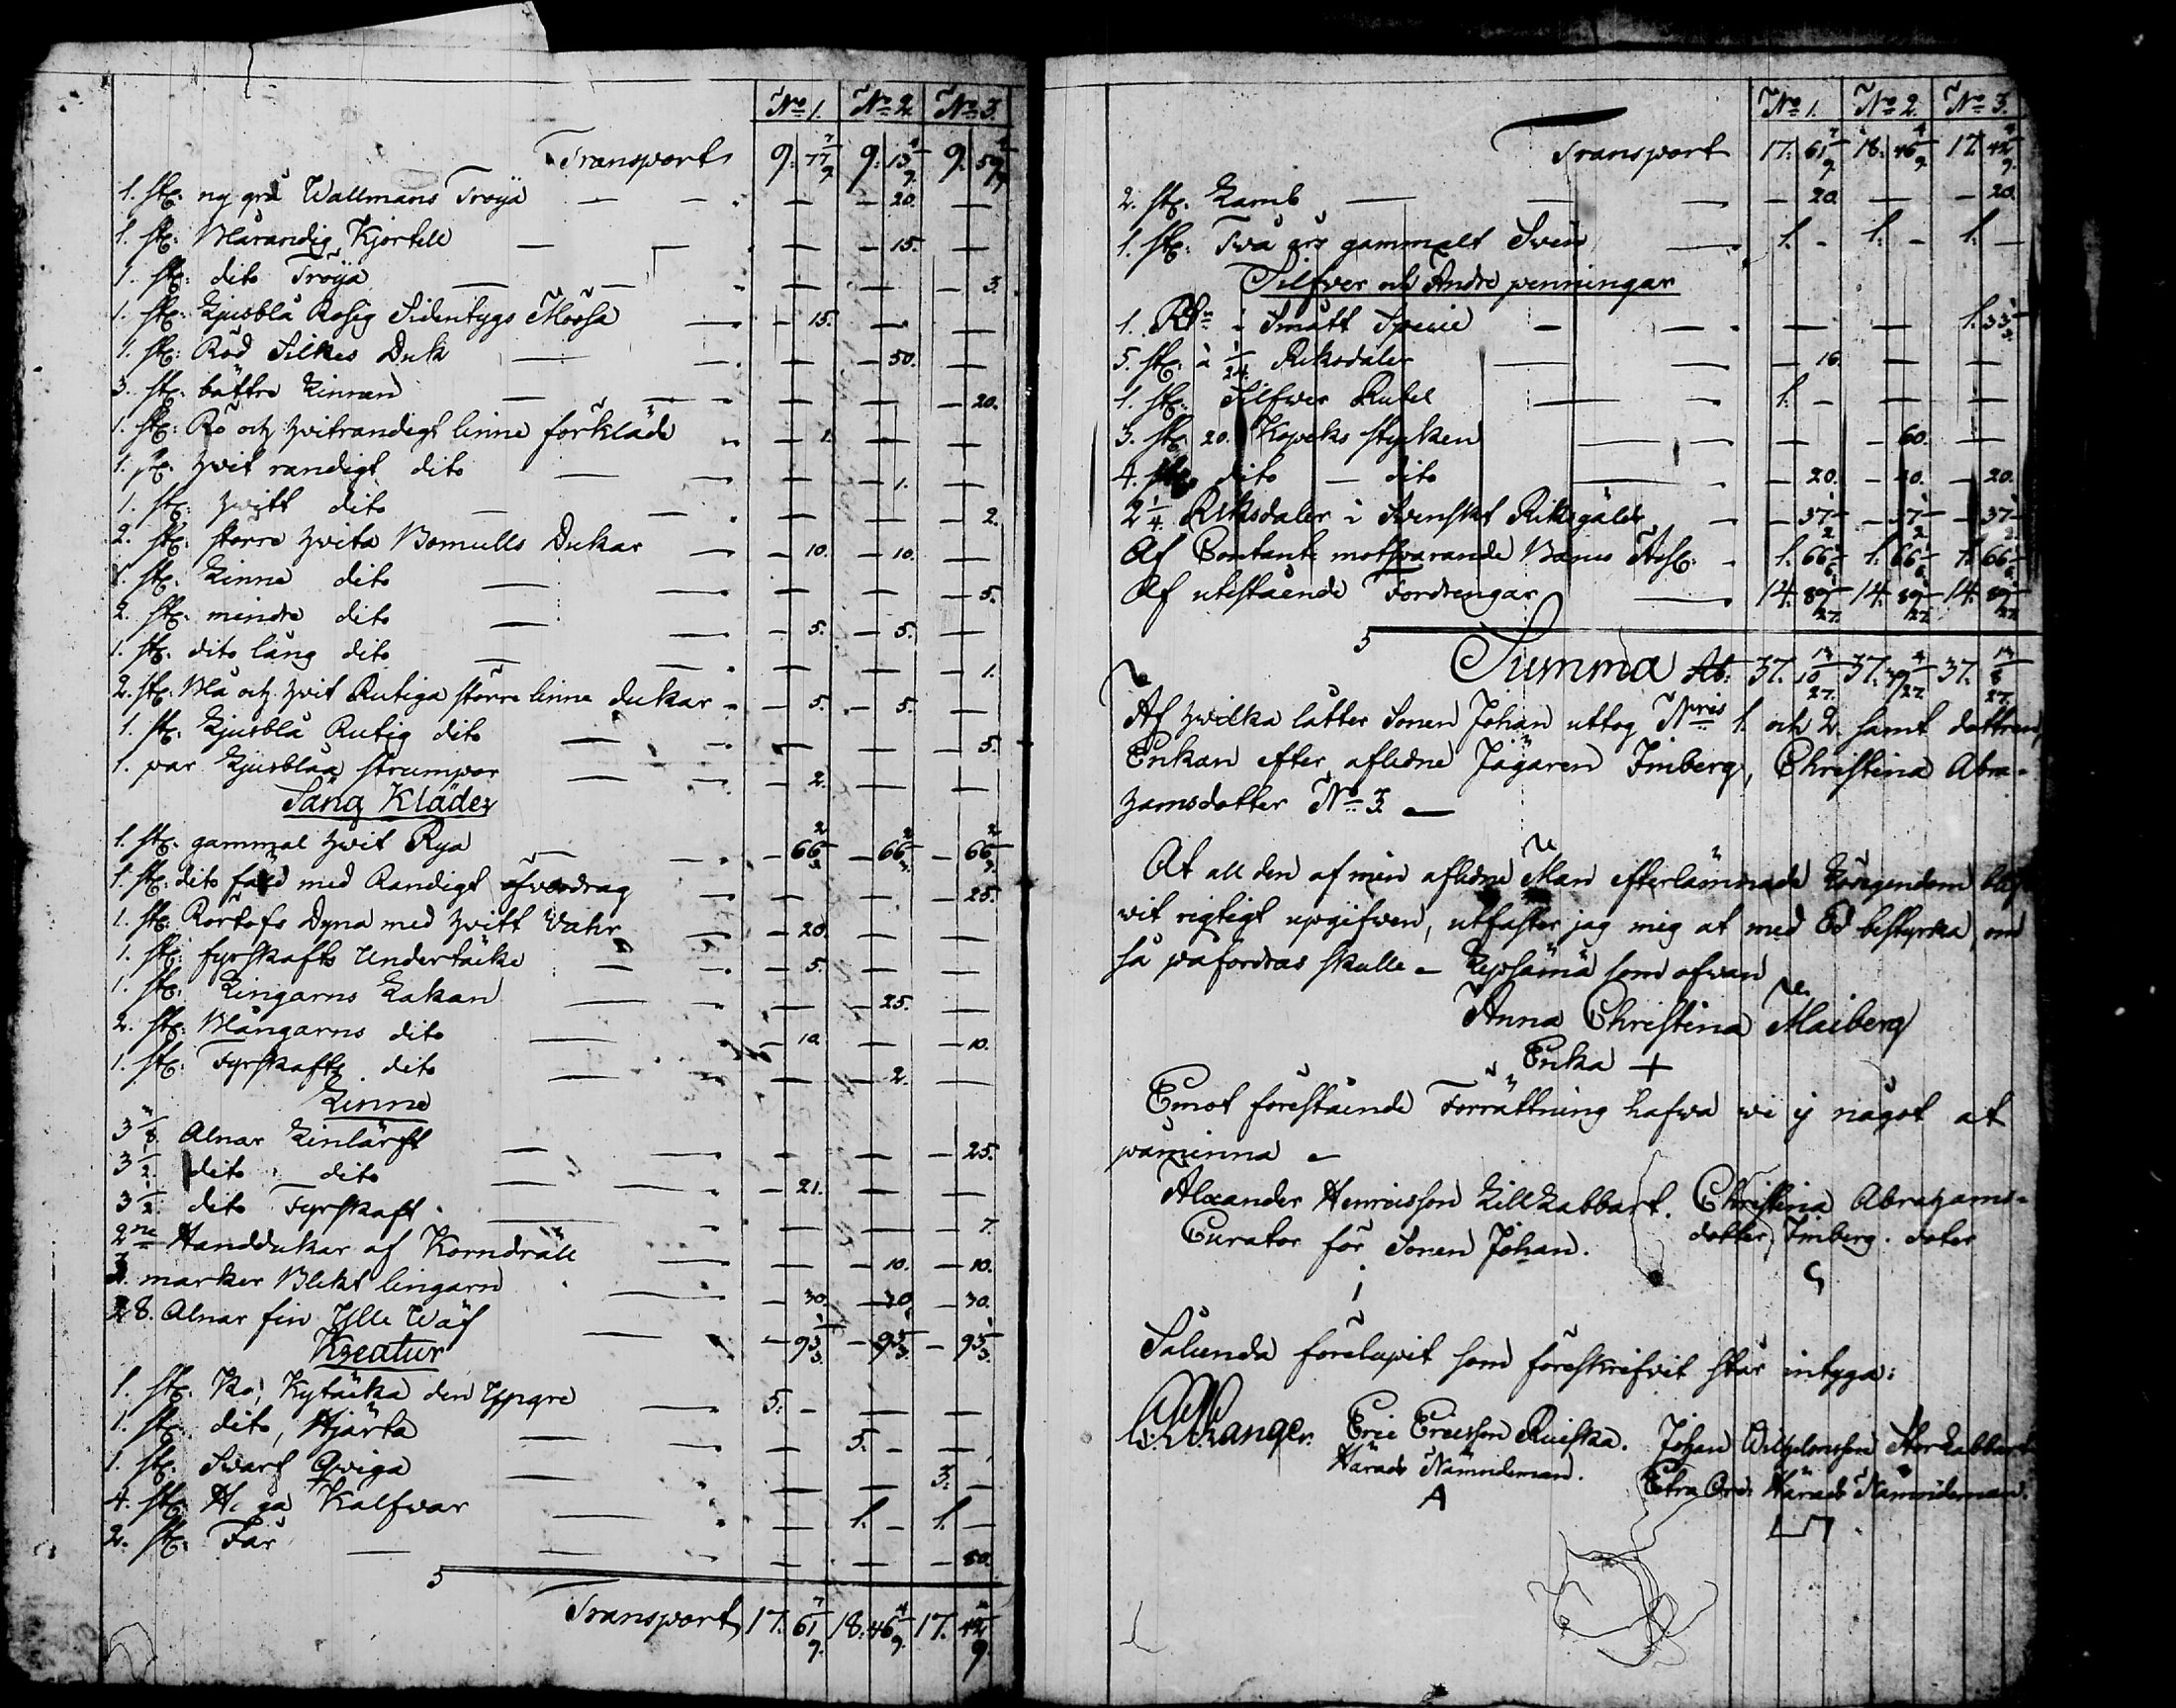 No 1. No 2. No 3.
Transport 9: 77 7/9 9: 13 4/9 9. 59 4/9
1. st: ny grå Wallmans Tröija — — — 20. —
1. st: Blårandig Kjortell — — — 15. —
1. st: dito Tröija — — — — 3.
1. st: Ljusblå Rosig Sidentygs Mössa — 15. — —
1. st: Röd Silkes Duk — — — 50. —
3. st: bättre Linnen — — — — 20.
1. st: Rö och hvitrandigt linne förkläde — 1. — —
1. st: hvit randigt dito — — — 1. —
1. st: hvitt dito — — — — 2.
2. st: större hvita Bomulls Dukar — 10. — 10. —
1. st: Linne dito — — — — 5.
2. st: mindre dito — 5. — 5. —
1. st: dito lång dito — — — — 1.
2. st: Blå och hvit Rutiga större linne dukar — 5. — 5. —
1. st: Ljusblå Rutig dito — — — — 5.
1. par Ljusblåa strumpor — 2. — —
Säng Kläder
1. st: gammal hvit Rya — 66 2/3 — 66 2/3 — 66 2/3
1. st: dito fäld med Randigt öfverdrag — — — 25.
1. st: Dyna med hvitt Vahr — 20. — —
1. st: fyrskafts Undertäcke — 5. — —
1. st: Lingarns Lakan — — 25. —
2. st: Blångarns dito — 10. — — 10.
1. st: Fyrskafts dito — — 2. —
Linne
3 Alnar Linlärft — — — 25.
3 1/2 dito dito — 21. — —
3 1/2 dito Fyrskaft — — — 7.
2ne Handdukar af Korndräll — — 10. — 10.
3. marker Blekt lingarn — 30. — 30. — 30.
28. Alnar fin Ylle Wäf — 93 1/3 — 93 1/3 — 93 1/3
Kreatur
1. st: Ko, Kytäcka den Yngre 5. — — —
1. st: dito, Hjärta — 5. — —
1. st: Svart Qviga — — 3. —
4. st: Kalfvar — 1. — 1. —
2. st: Får — — — 80.
Transport 17. 61 7/9 18. 46 4/9 17. 42 4/9
No 1. No 2. No 3.
Transport 17. 61 7/9 18. 46 4/9 17. 42 4/9
2. st: Lamb — 20. — — 20.
1. st: Två års gammalt Svin 1. — 1. — 1. —
Silfver och Andre penningar
1. Rdr i Smått Specie — — 1. 33 1/3
5. st: à 1/24 Riksdaler — 16. — —
1. st: Silfver Rubel 1. — — —
3. st: 20. Kopeks stycken — — 60. —
4. st: dito — dito — 20. — 20. — 20.
2 1/4 Riksdaler i Svenskt Riksgälds — 37 1/2 — 37 1/2 — 37 1/2
Af Contant motsvarande Banco 1. 66 1. 66 1. 66
Af utestående Fordringar 14. 89 14. 89 14. 89
Summa 37. 10 13/27 37. 79 4/27 37. 8 13/27
Af hvilka låtter Sonen Johan uttog Nris 1. och 2. samt dottren,
Enkan efter aflidne Jägaren Imberg, Christina Abra-
hamsdotter No 3. —
At all den af min aflidne Man efterlämnade Lösegendom blif-
vit rigtigt upgifven, utfäster jag mig at med Ed bestyrka, om
så påfordras skulle — Lepsämä som ofvan
Anna Christina Maiberg
Enka +
Emot förestående Förrättning hafva vi ej något at
påminna —
Alexander Henricsson Lill Labbart. Christina Abrahams-
Curator för Sonen Johan. dotter, Imberg. doter
Sålunda förelupit som föreskrifvit står intyga:
Eric Ericsson Ruiska. Johan Wilhelmsson Stor Labbart.
Härads Nämndeman. Extra Ord: Härads Nämndeman.
A